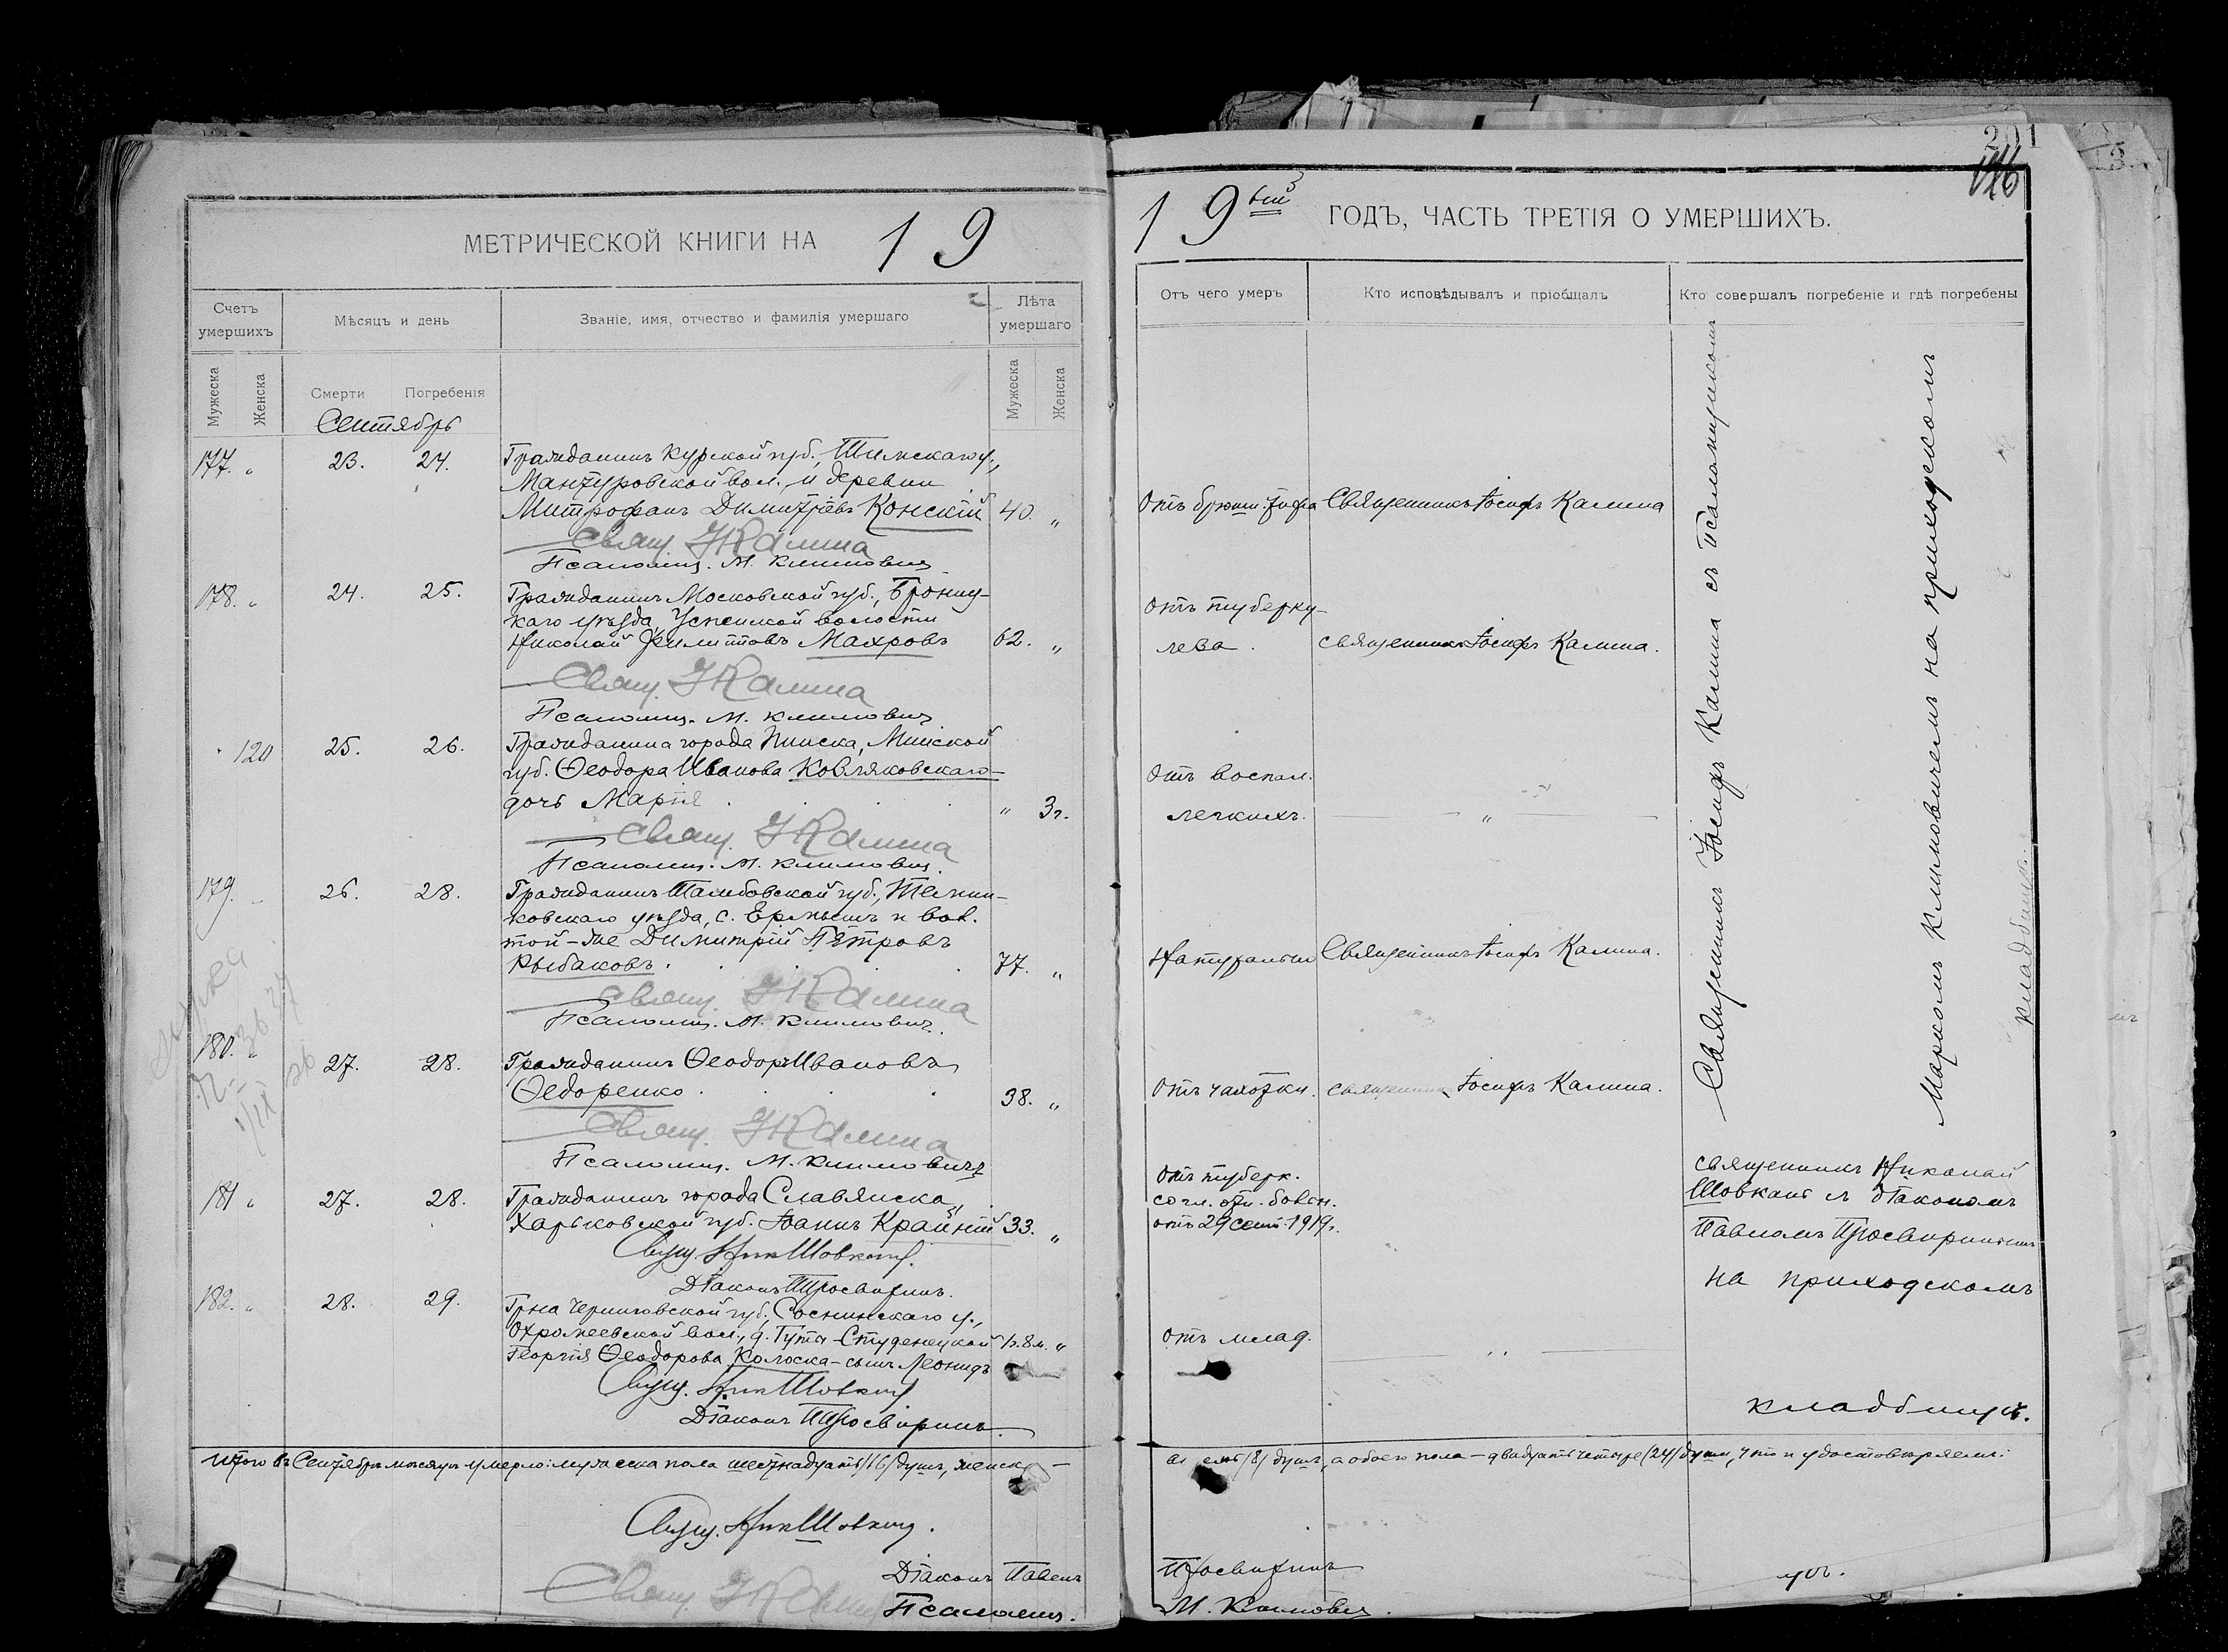 МЕТРИЧЕСКОЙ КНИГИ НА 19
Счетъ умершихъ
Мѣсяцъ и день
Званіе, имя, отчество и фамилія умершаго
Лѣта умершаго
Мужеска
Женска
Смерти
Погребенія
Мужеска
Женска
Сентябрь
177. „ 23. 24. Гражданинъ Курской губ., Тимскаго у.,
Мантуровской вол. и деревни
Митрофанъ Димитріевъ Конскій 40. „
Свящ. І Калина
Псаломщ. М. Климович
178. „ 24. 25. Гражданинъ Московской губ., Бронниц-
каго уѣзда, Успенской волости
Николай Филипповъ Махровъ 62. „
Свящ. І Калина
Псаломщ. М. Климович
120 25. 26. Гражданина города Пинска, Минской
губ. Ѳеодора Иванова Ковляковскаго-
дочь Марія „ 3 г.
Свящ. І Калина
Псаломщ. М. Климович.
179. 26. 28. Гражданинъ Тамбовской губ., Темни-
ковскаго уѣзда, с. Ермышъ и вол.
той-же Димитрій Петровъ
Рыбаковъ. 77. „
Свящ. І Калина
Псаломщ. М. Климович.
180. „ 27. 28. Гражданинъ Ѳеодоръ Ивановъ
Ѳедоренко. 38. „
Свящ. І Калина
Псаломщ. М. Климовичъ
181 „ 27. 28. Гражданинъ города Славянска,
Харьковской губ. Іоаннъ Крайній 33. „
Свящ. Ник Шовкопл.
Діаконъ П Просвирнинъ.
182. „ 28. 29. Гр-на Черниговской губ., Сосницкаго у.,
Охромеевской вол., д. Гута-Студенецкой 1 г. 8 м. „
Георгія Ѳеодорова Колоска-сынъ Леонидъ
Свящ. Ник Шовкопл
Діаконъ П Просвирнинъ.
Итого въ Сентябрѣ мѣсяцѣ умерло: мужеска пола шестнадцать /16/ душъ, женск
Свящ. Ник Шовкопл.
Діаконъ Павелъ
Свящ. І Калина Псаломщ.
201
19 ГОДЪ, ЧАСТЬ ТРЕТІЯ О УМЕРШИХЪ.
Отъ чего умеръ
Кто исповѣдывалъ и пріобщалъ
Кто совершалъ погребеніе и гдѣ погребены
Отъ брюшн. тифа Священникъ Іосифъ Калина
отъ туберку-
леза. священникъ Іосифъ Калина.
Отъ воспал.
легкихъ. „
Натурально Священникъ Іосифъ Калина.
Отъ чахотки. священникъ Іосифъ Калина.
Священникъ Іосифъ Калина съ Псаломщикомъ
Маркомъ Климовичемъ на приходскомъ
кладбищѣ.
Отъ туберк.
согл. отн. больн.
отъ 29 сент 1919 г.
священникъ Николай
Шовкопл съ діакономъ
Павломъ Просвирнинымъ
на приходскомъ
отъ млад.
кладбищѣ.
во /8/ душъ, а обоего пола - двадцать четыре (24) души, что и удостовѣряемъ:
Просвирнинъ
М. Климович.